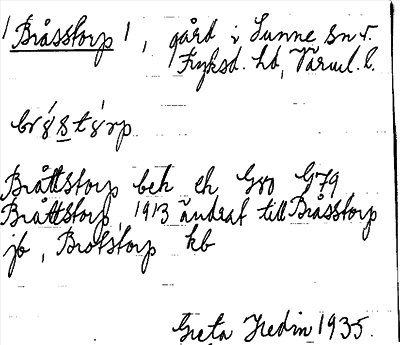 /Bråsstorp/, gård i Sunne sn.
Fryksd. hd, Värml. l.
Bråttstorp bek eh G80 G79
Bråttstorp, 1913 ändrat till Bråsstorp
jb, Brotstorp kb
Greta Hedin 1935.